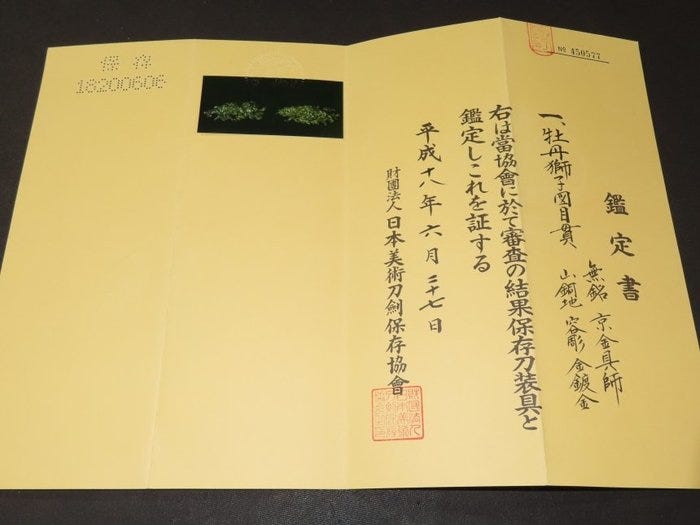 № 450577
鑑定書
一、牡丹獅子図目貫
無銘 京金具師
山銅地 容彫 金鍍金
右は當協會に於て審査の結果保存刀装具と
鑑定しこれを証する
平成十八年六月二十七日
財團法人日本美術刀劍保存協會
保存
18200606